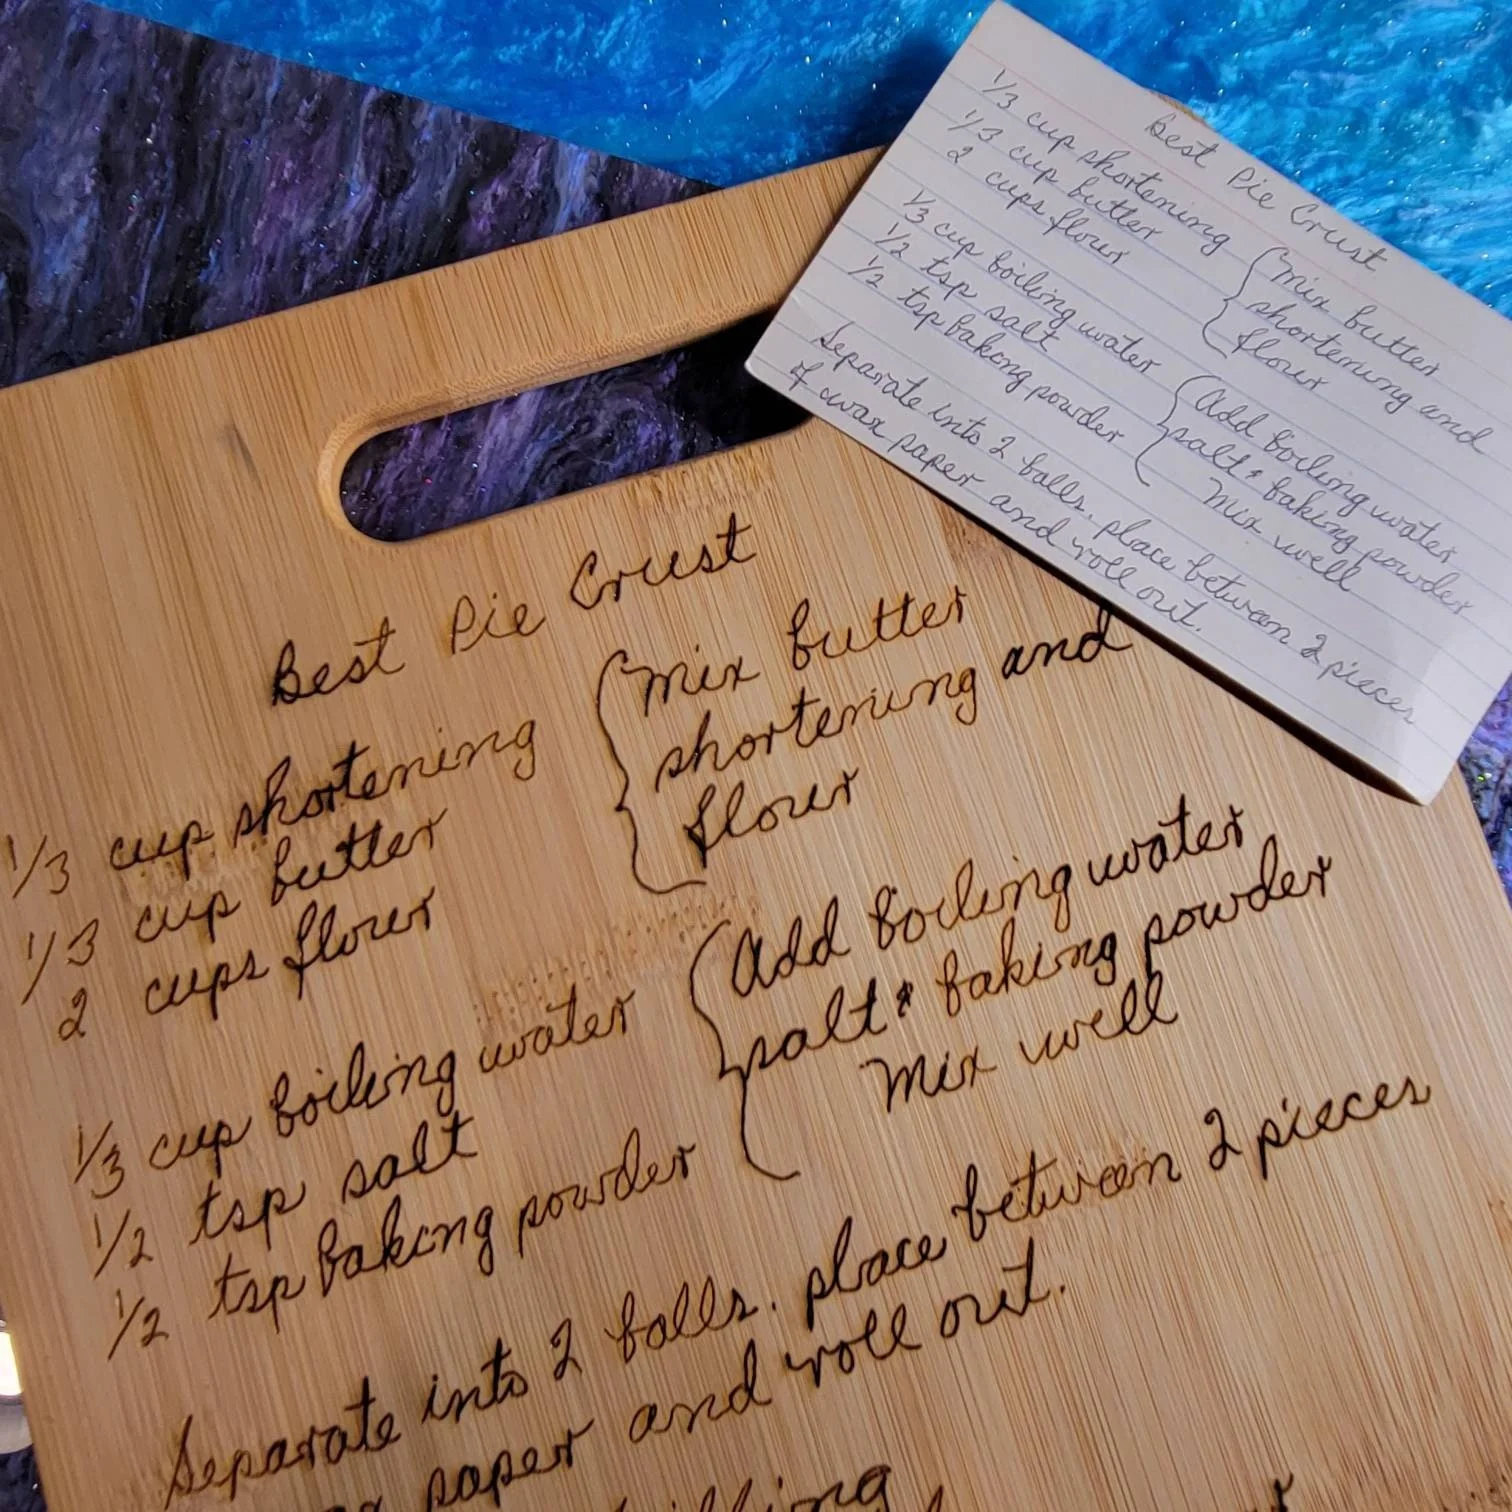 Best Pie Crust
1/3 cup shortening
1/3 cup butter
2 cups flour
Mix butter
shortening and
flour
1/3 cup boiling water
1/2 tsp salt
1/2 tsp baking powder
Add boiling water
salt & baking powder
Mix well
Separate into 2 balls. place between 2 pieces
of wax paper and roll out.
Best Pie Crust
1/3 cup shortening
1/3 cup butter
2 cups flour
Mix butter
shortening and
flour
1/3 cup boiling water
1/2 tsp salt
1/2 tsp baking powder
Add boiling water
salt & baking powder
Mix well
Separate into 2 balls. place between 2 pieces
paper and roll out.